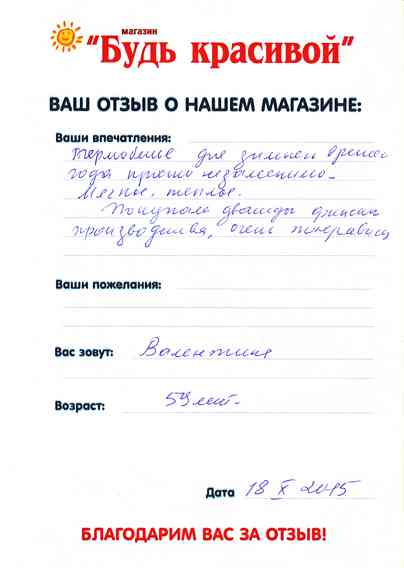 магазин
"Будь красивой"
ВАШ ОТЗЫВ О НАШЕМ МАГАЗИНЕ:
Ваши впечатления:
Термобелье для зимнего времени
года просто незаменимо.
Мягкое, теплое.
Покупала дважды
производства, очень понравилось
Ваши пожелания:
Вас зовут: Валентина
Возраст: 59 лет.
Дата 18 X 2015
БЛАГОДАРИМ ВАС ЗА ОТЗЫВ!